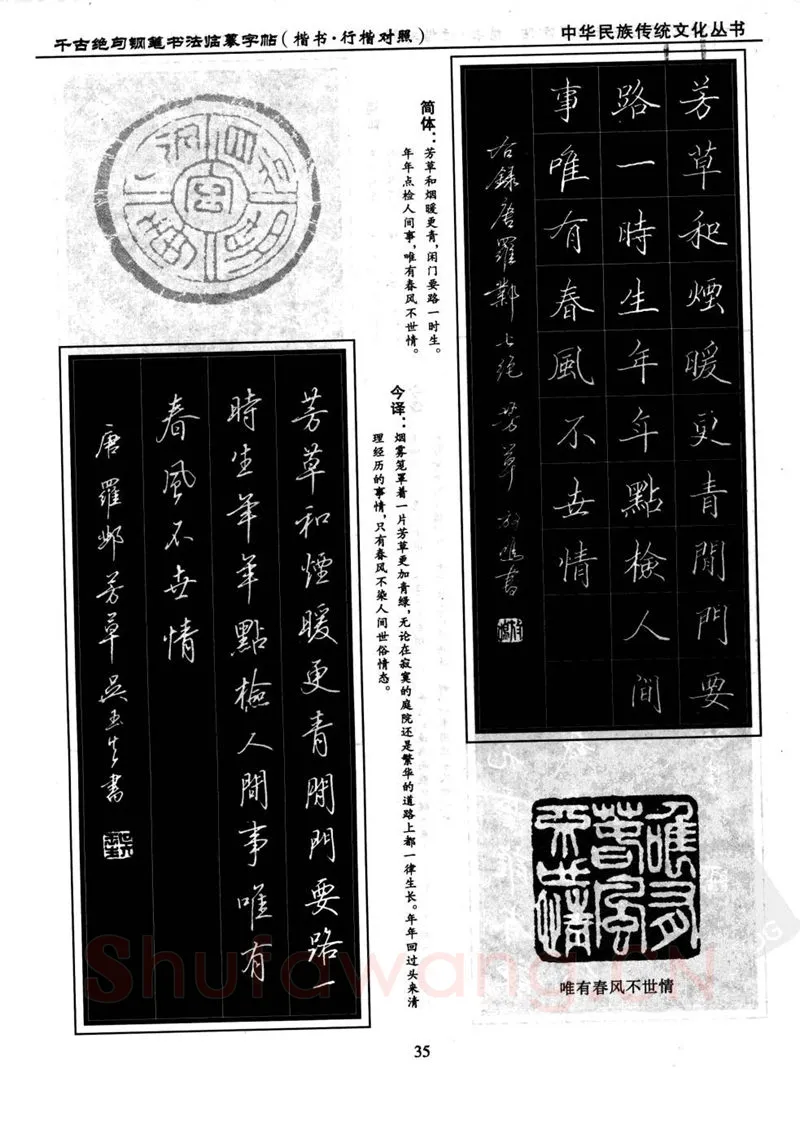 千古绝句钢笔书法临摹字帖(楷书·行楷对照)
中华民族传统文化丛书
芳草和煙暖更青閒門要
路一時生年年點檢人間
事唯有春風不世情
右錄唐羅鄴七絕芳草
简体：芳草和烟暖更青，闲门要路一时生。
年年点检人间事，唯有春风不世情。
今译：烟雾笼罩着一片芳草更加青绿，无论在寂寞的庭院还是繁华的道路上都一律生长。年年回过头来清
理经历的事情，只有春风不染人间世俗情态。
芳草和煙暖更青閒門要路一
時生年年點檢人間事唯有
春風不世情
唐羅鄴芳草吴玉生書
唯有
春風
不世情
唯有春风不世情
35
Shufawang.CN